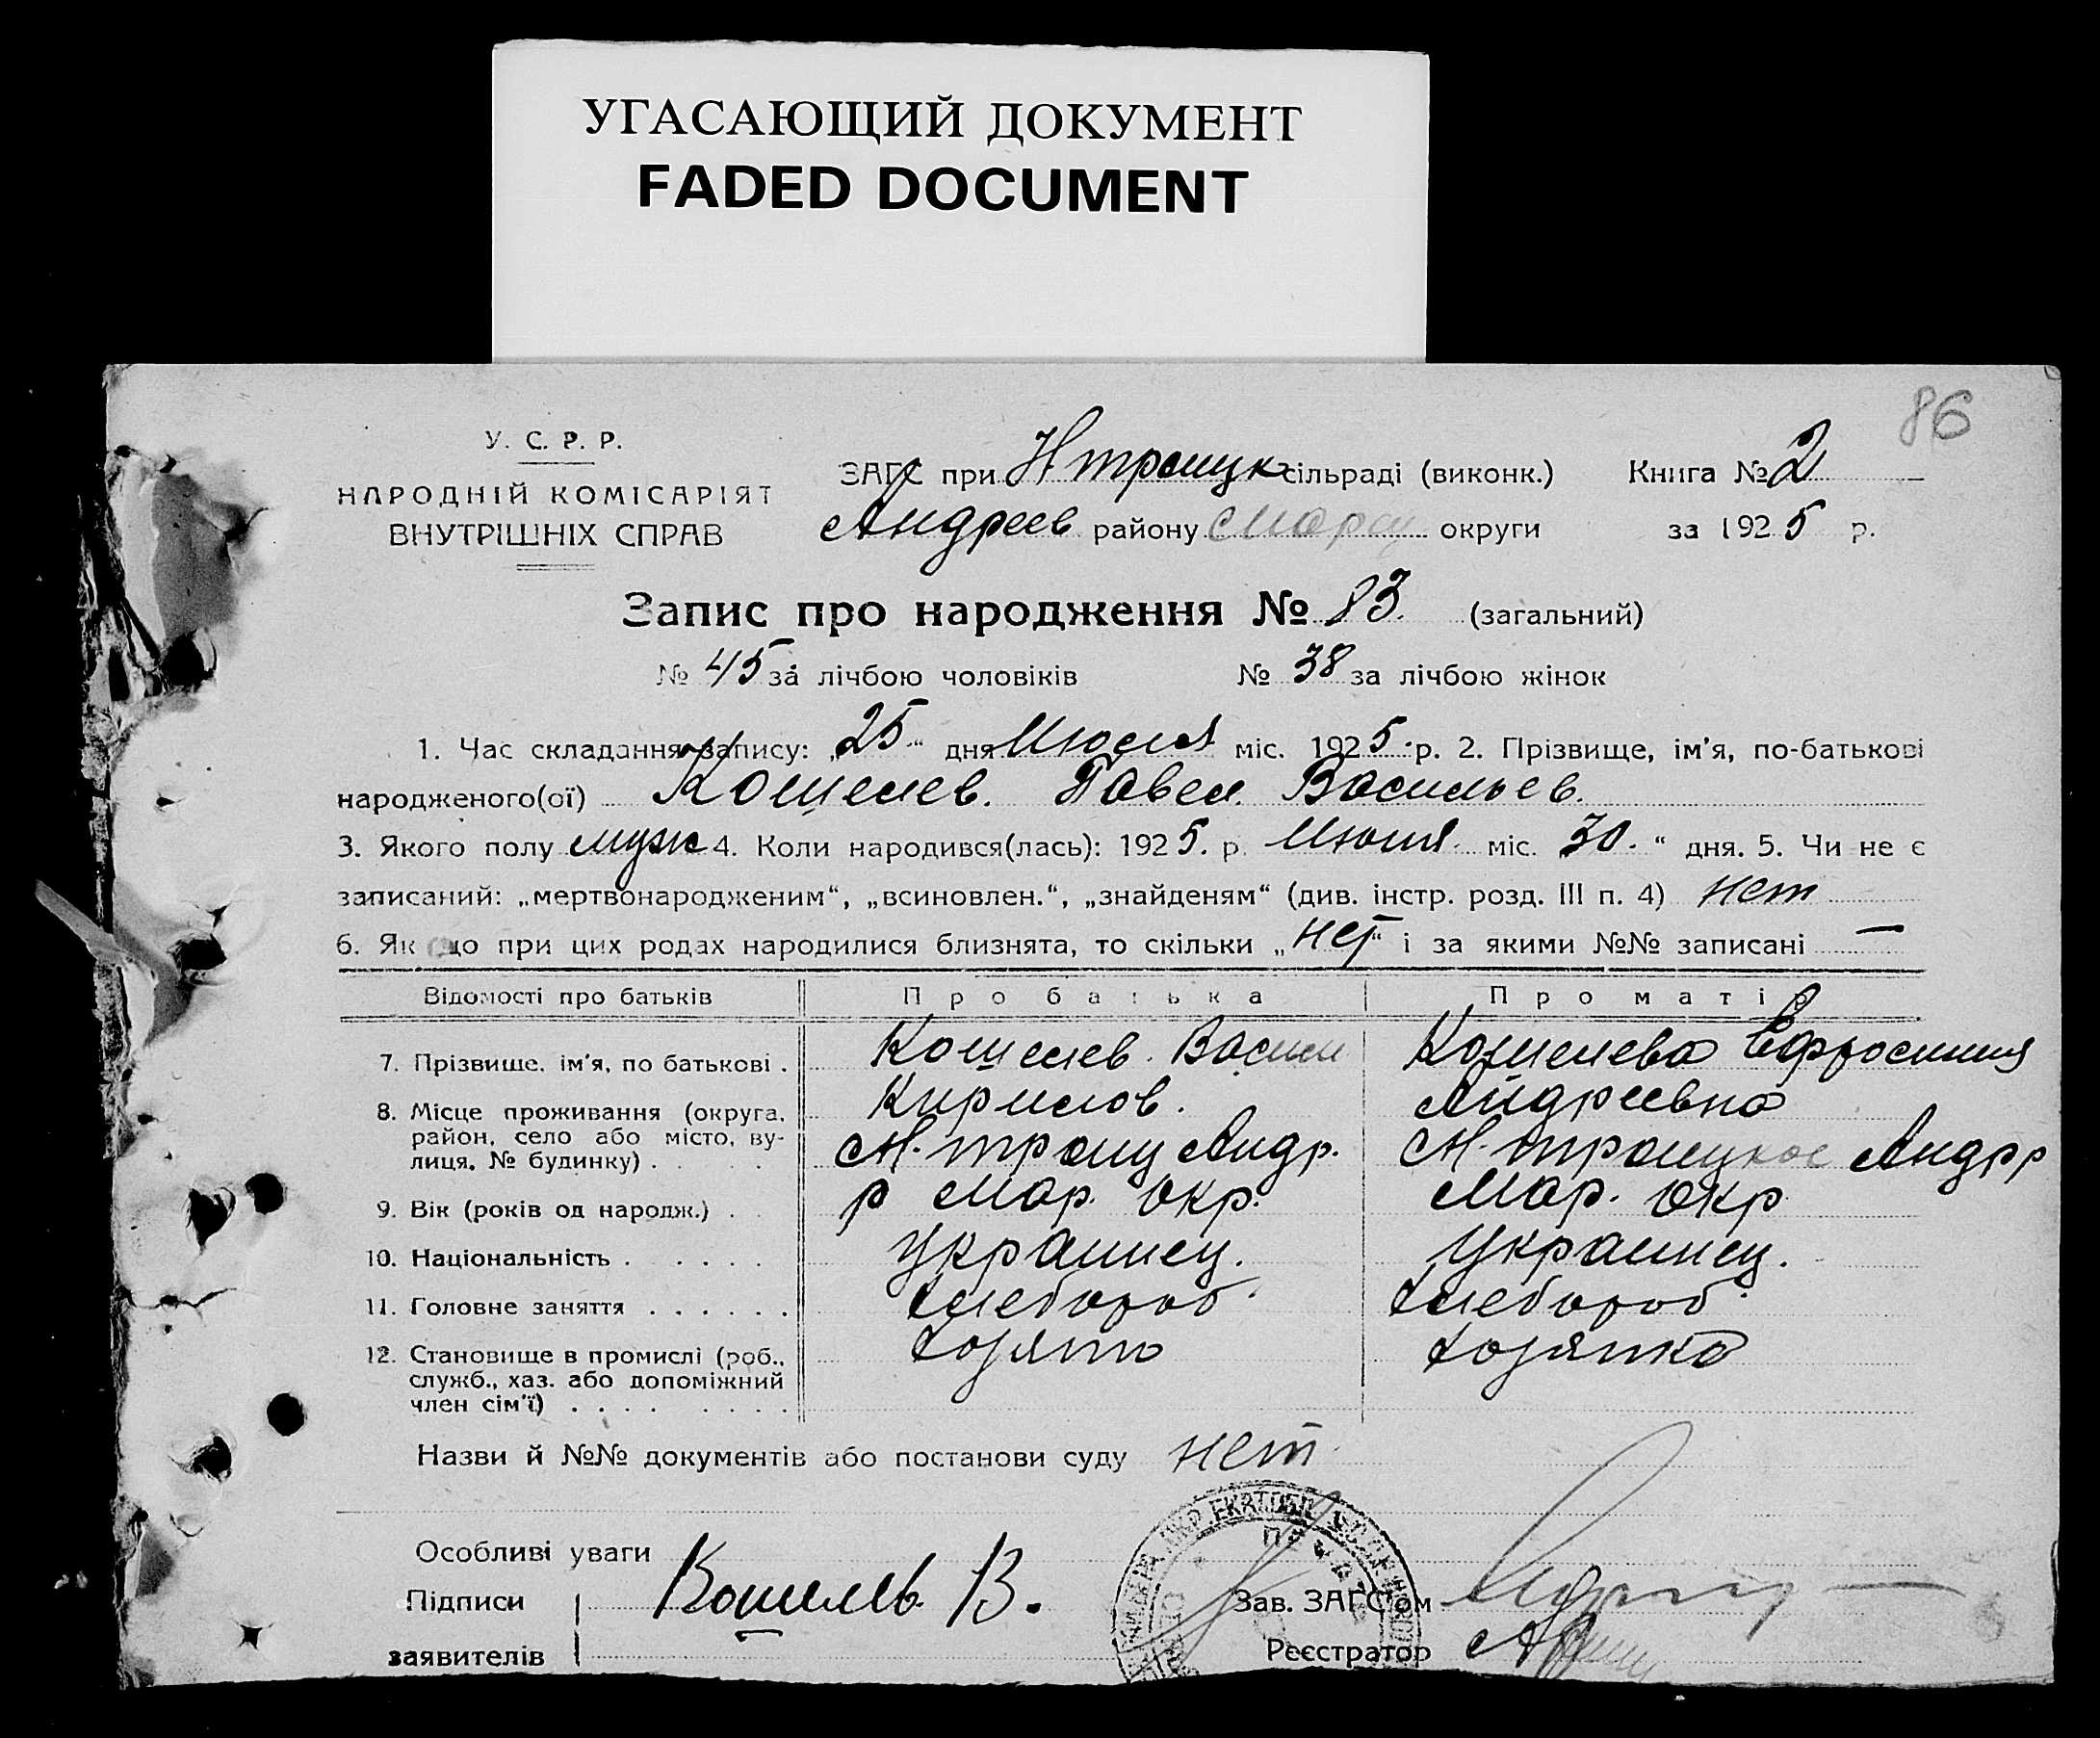 УГАСАЮЩИЙ ДОКУМЕНТ
FADED DOCUMENT
86
У. С. Р. Р.
НАРОДНІЙ КОМІСАРІЯТ
ВНУТРІШНІХ СПРАВ
ЗАГС при Н троицк сільраді (виконк.) Книга № 2
Андреев району Мар округи за 1925 р.
Запис про народження № 83. (загальний)
№ 45 за лічбою чоловіків № 38 за лічбою жінок
1. Час складання запису: „25“ дня Июля міс. 1925 р. 2. Прізвище, ім'я, по-батькові
народженого(ої) Кошелев. Павел. Васильев.
3. Якого полу муж 4. Коли народився(лась): 1925. р. Июня міс. „30.“ дня. 5. Чи не є
записаний: „мертвонародженим“, „всиновлен.“, „знайденям“ (див. інстр. розд. III п. 4) нет
6. Якщо при цих родах народилися близнята, то скільки „нет“ і за якими №№ записані —
Відомості про батьків Про батька Про матір
7. Прізвище, ім'я, по батькові . Кошелев. Васили Кошелева Ефросиния
Кирилов. Андреевна
8. Місце проживання (округа, район, село або місто, вулиця, № будинку) . Н. троиц Андр. Н. троицкое Андр р
9. Вік (років од народж.) . р Мар. окр. Мар. окр
10. Національність . Украинец. Украинец.
11. Головне заняття . Хлебороб. Хлебороб.
12. Становище в промислі (роб., Хозяин Хозяйка
служб., хаз. або допоміжний
член сім'ї) .
Назви й №№ документів або постанови суду нет.
Особливі уваги
Підписи Кошелев В. Зав. ЗАГС'ом
заявителів Реєстратор